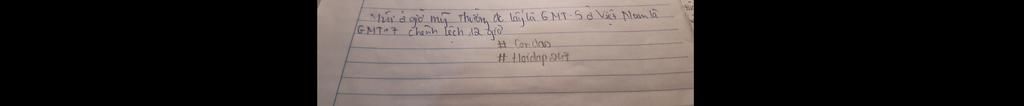 Múi giờ mỹ thường đc lấy là GMT-5 ở Việt Nam là
GMT+7 chênh lệch 12 giờ
# Cordao
# Hoidap247